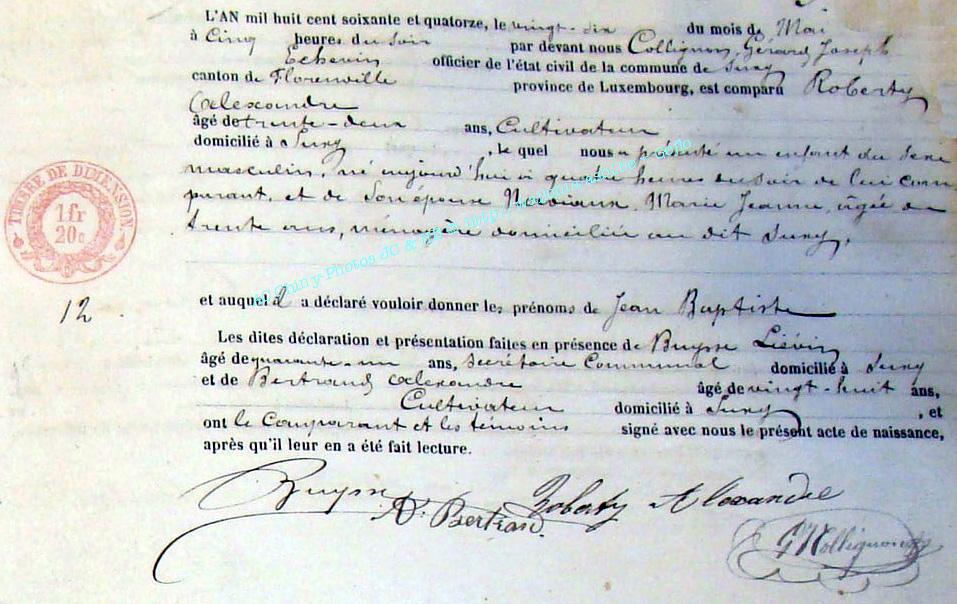 L'AN mil huit cent soixante et quatorze, le vingt-dix du mois de Mai
à Cinq heures du soir par devant nous Collignon, Gérard Joseph
Echevin officier de l'état civil de la commune de Suxy
canton de Florenville province de Luxembourg, est comparu Roberty
Alexandre
âgé de trente-deux ans, Cultivateur
domicilié à Suxy, le quel nous a présenté un enfant du sexe
masculin, né aujourd'hui à quatre heures du soir de lui com
parant, et de Son épouse Marie Jeanne, âgée de
trente ans, ménagère domiciliée au dit Suxy.
et auquel il a déclaré vouloir donner les prénoms de Jean Baptiste
Les dites déclaration et présentation faites en présence de Buysse Liévin
âgé de quarante-un ans, Secrétaire Communal domicilié à Suxy
et de Bertrand Alexandre âgé de vingt-huit ans,
Cultivateur domicilié à Suxy, et
ont le Comparant et les témoins signé avec nous le présent acte de naissance,
après qu'il leur en a été fait lecture.
TIMBRE DE DIMENSION
1 fr
20 c
12
Buysse
Roberty Alexandre
A. Bertrand.
G Collignon